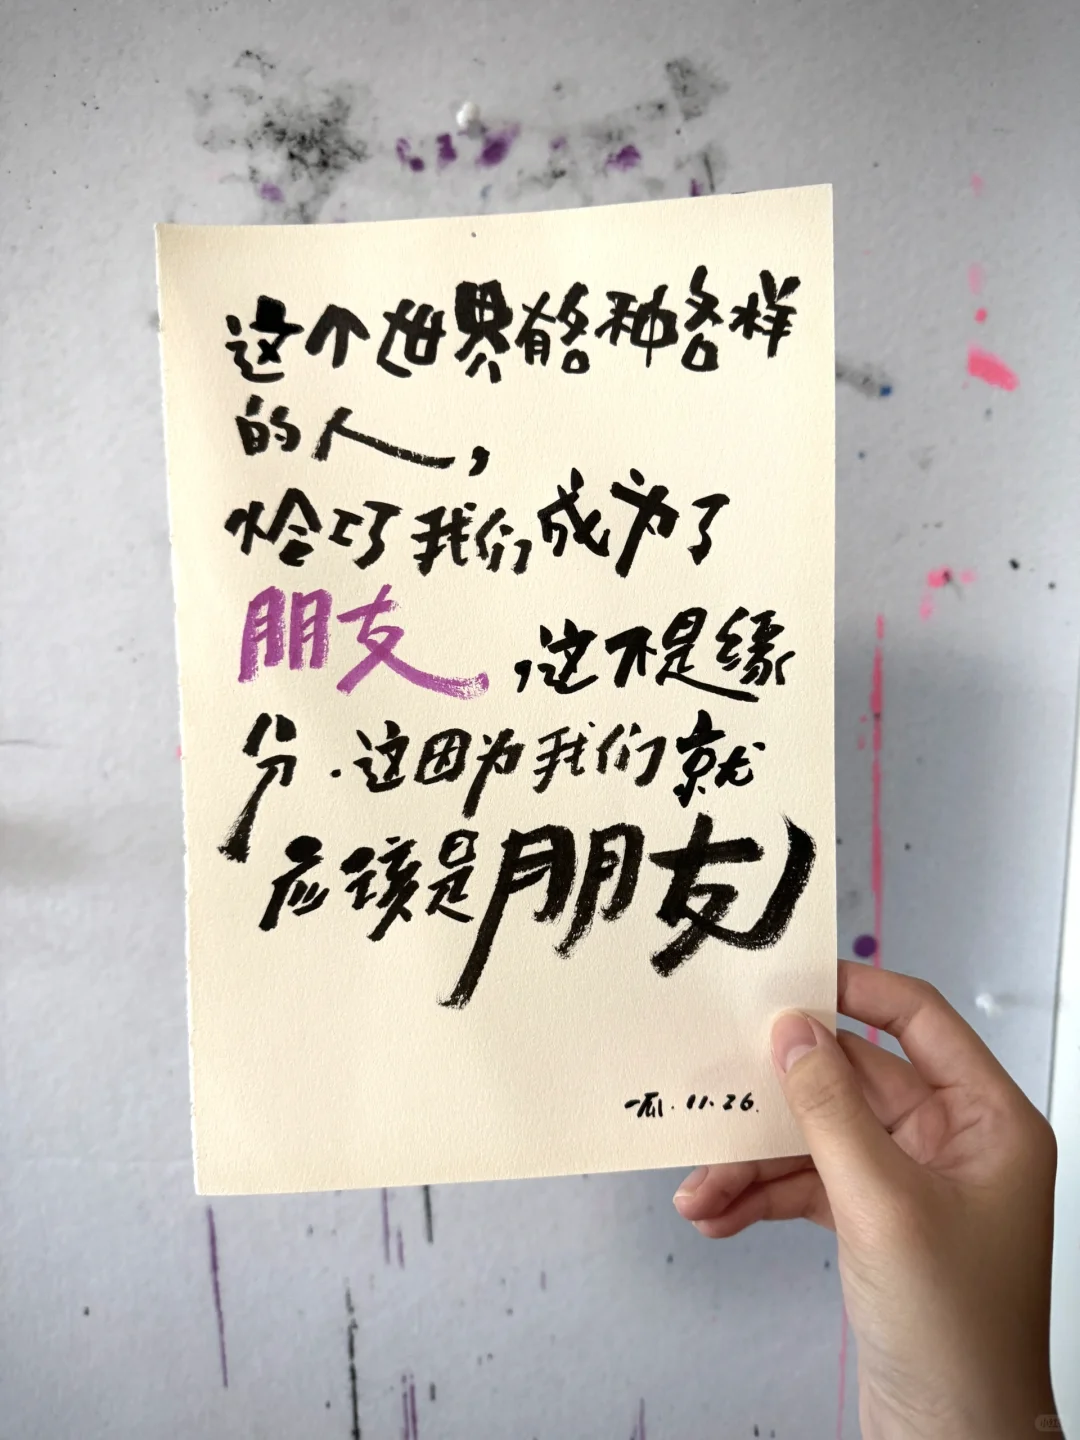 这个世界有各种各样
的人，
恰巧我们成为了
朋友，这不是缘
分.这因为我们就
应该是朋友
一瓜.11.26.
小红书